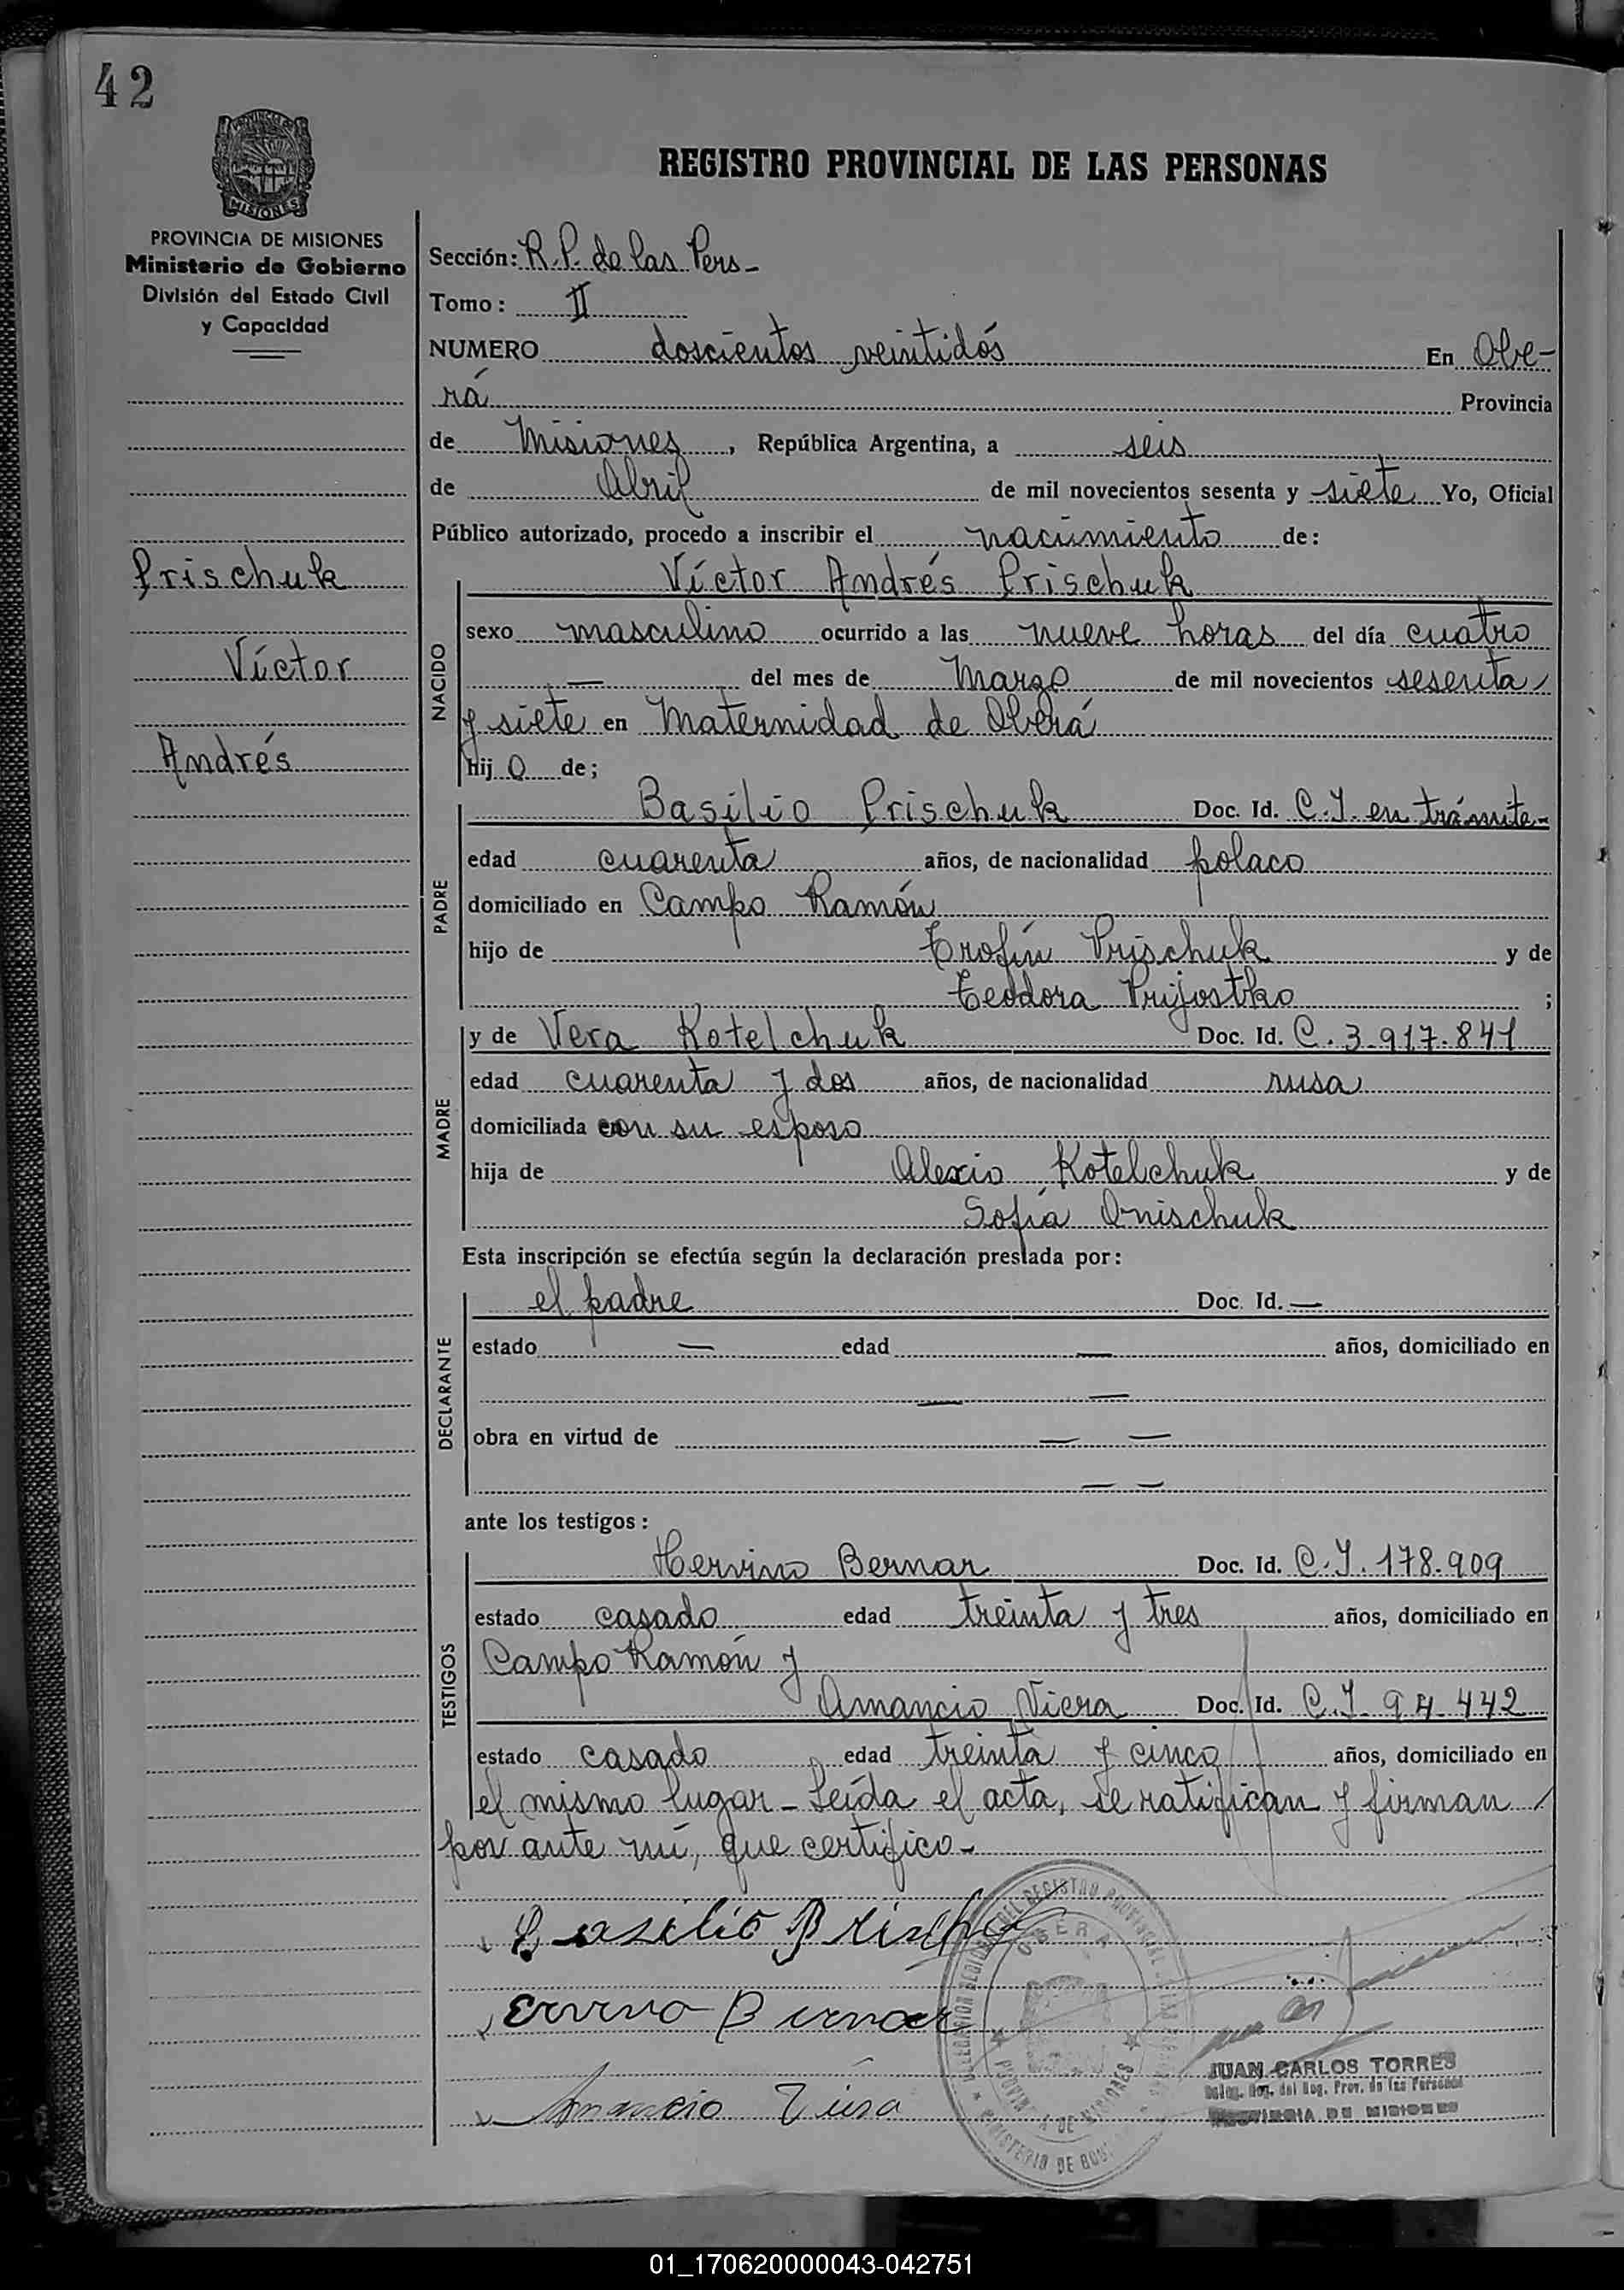 42
PROVINCIA DE MISIONES
Ministerio de Gobierno
División del Estado Civil
y Capacidad
Prischuk
Víctor
Andrés
REGISTRO PROVINCIAL DE LAS PERSONAS
Sección: R.P. de las Pers-
Tomo: II
NUMERO doscientos veintidós En Obe-
rá Provincia
de Misiones, República Argentina, a seis
de Abril de mil novecientos sesenta y siete Yo, Oficial
Público autorizado, procedo a inscribir el nacimiento de:
NACIDO
Víctor Andrés Prischuk
sexo masculino ocurrido a las nueve horas del día cuatro
— del mes de Marzo de mil novecientos sesenta
y siete en Maternidad de Oberá
hijo de;
PADRE
Basilio Prischuk Doc. Id. C.I. en trámite-
edad cuarenta años, de nacionalidad polaco
domiciliado en Campo Ramón
hijo de Trofin Prischuk y de
Teodora Prijostko ;
MADRE
y de Vera Kotelchuk Doc. Id. C. 3.917.841
edad cuarenta y dos años, de nacionalidad rusa
domiciliada con su esposo
hija de Alexio Kotelchuk y de
Sofía Onischuk
Esta inscripción se efectúa según la declaración prestada por:
DECLARANTE
el padre Doc. Id. —
estado — edad — años, domiciliado en
— —
obra en virtud de — —
— —
ante los testigos:
TESTIGOS
Hervino Bernar Doc. Id. C.I. 178.909
estado casado edad treinta y tres años, domiciliado en
Campo Ramón y
Amancio Viera Doc. Id. C.I. 94.442
estado casado edad treinta y cinco años, domiciliado en
el mismo lugar- Leída el acta, se ratifican y firman
por ante mí, que certifico-
Basilio
Ervino Bernar
Amancio Viera
OBERA
PROVINCIA DE MISIONES
JUAN CARLOS TORRES
Deleg. Reg. del Reg. Prov. de las Personas
PROVINCIA DE MISIONES
01_170620000043-042751